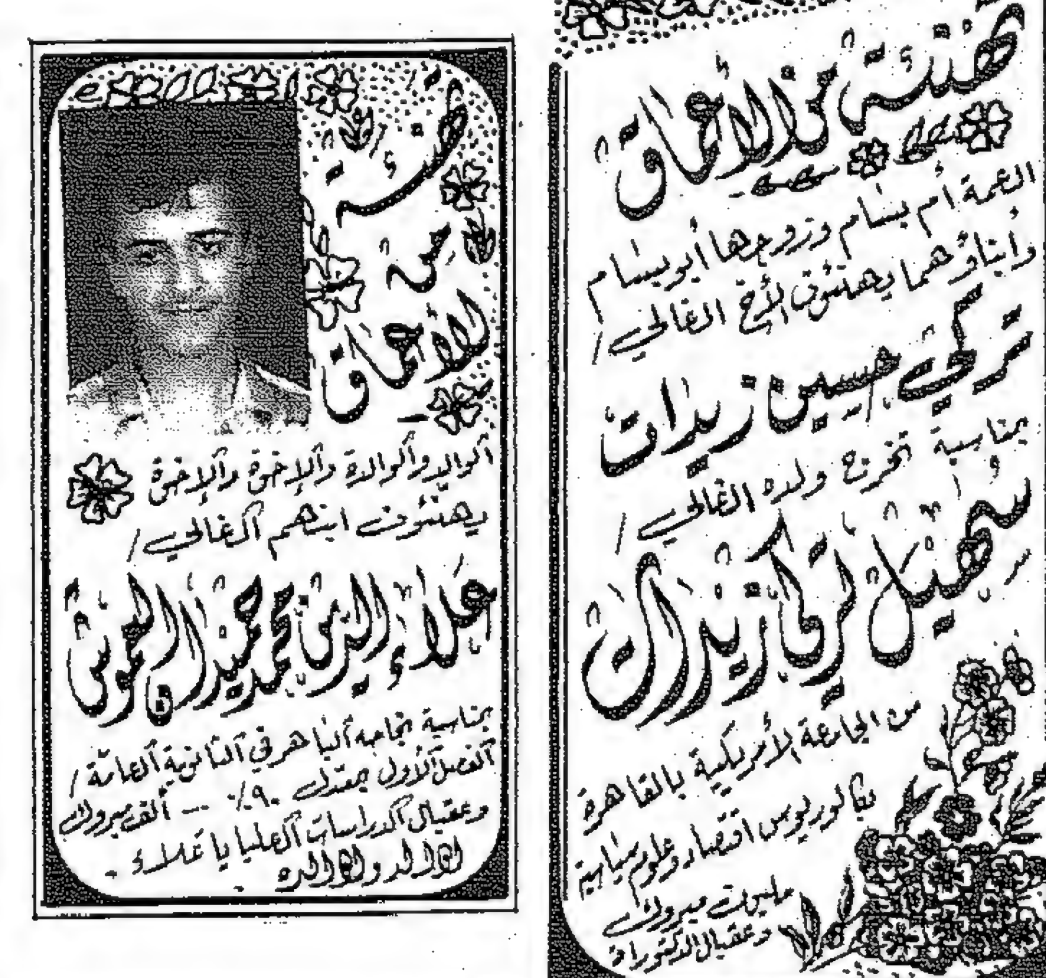 تهنئة من الأعماق
العمة أم بسام وزوجها أبو بسام
وأبناؤهما يهنئون الأخ الغالي /
تركي حسين زيدات
بمناسبة تخرج ولده الغالي /
سهيل تركي زيدات
من الجامعة الأمريكية بالقاهرة
بكالوريوس اقتصاد وعلوم سياسية
مليون مبروك
وعقبال الدكتوراة
تهنئة
من
الأعماق
الوالد والوالدة والإخوة والإخوة
يهنئون ابنهم الغالي /
علاء الدين محمد حميدان
بمناسبة نجاحه الباهر في الثانوية العامة /
الفصل الأول بمعدل ٩٠٪ --- ألف مبروك
وعقبال الدراسات العليا يا علاء .
الوالد والوالدة